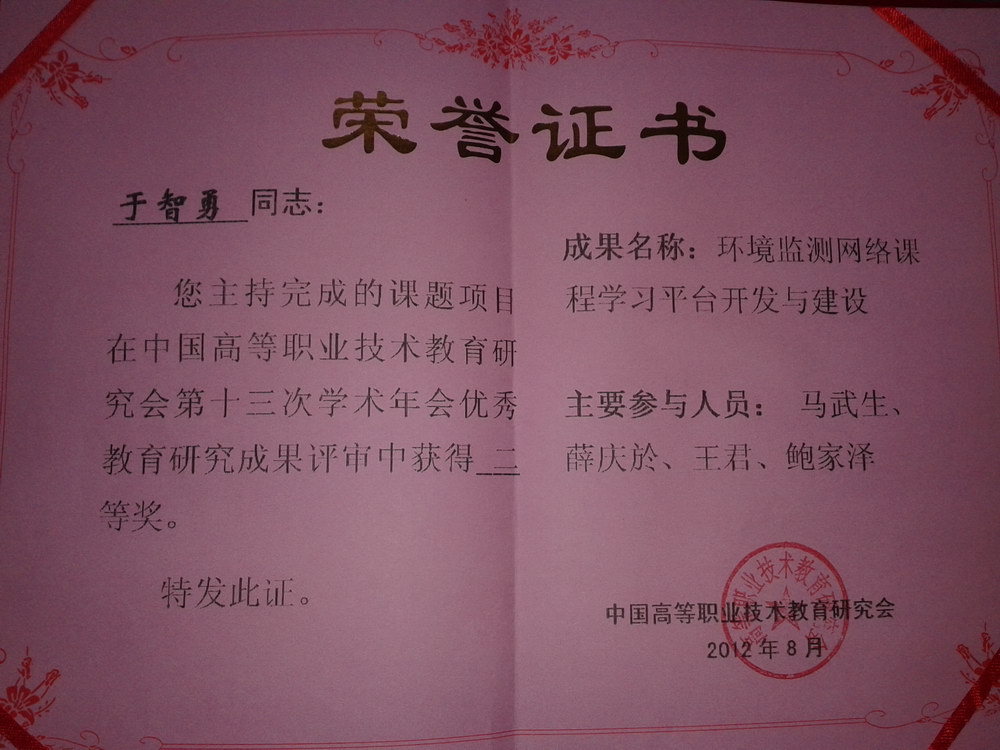 荣誉证书
于智勇 同志：
您主持完成的课题项目
在中国高等职业技术教育研
究会第十三次学术年会优秀
教育研究成果评审中获得 二
等奖。
特发此证。
成果名称：环境监测网络课
程学习平台开发与建设
主要参与人员： 马武生、
薛庆於、王君、鲍家泽
中国高等职业技术教育研究会
2012年8月